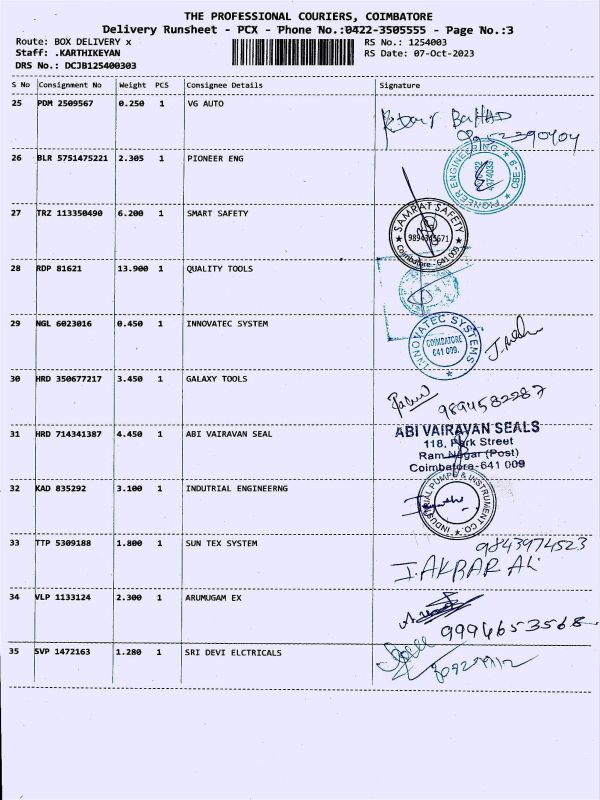 THE PROFESSIONAL COURIERS, COIMBATORE
Delivery Runsheet - PCX - Phone No.:0422-3505555 - Page No.:3
Route: BOX DELIVERY x RS No.: 1254003
Staff: .KARTHIKEYAN RS Date: 07-Oct-2023
DRS No.: DCJB125400303
S No Consignment No Weight PCS Consignee Details Signature
25 PDM 2509567 0.250 1 VG AUTO
26 BLR 5751475221 2.305 1 PIONEER ENG
PIONEER ENGINEERING ★ CBE-9 ★
27 TRZ 113350490 6.200 1 SMART SAFETY
★ SAMRAT SAFETY ★
Coimbatore - 641 009
28 RDP 81621 13.900 1 QUALITY TOOLS
29 NGL 6023016 0.450 1 INNOVATEC SYSTEM
INNOVATEC SYSTEMS ★
COIMBATORE
641 009.
30 HRD 350677217 3.450 1 GALAXY TOOLS
9894582287
31 HRD 714341387 4.450 1 ABI VAIRAVAN SEAL
ABI VAIRAVAN SEALS
118, Park Street
Ram Nagar (Post)
Coimbatore-641 009
32 KAD 835292 3.100 1 INDUTRIAL ENGINEERNG
INDUSTRIAL PUMPS & INSTRUMENT CO. ★
33 TTP 5309188 1.800 1 SUN TEX SYSTEM
9843974523
I.AKBAR ALI
34 VLP 1133124 2.300 1 ARUMUGAM EX
9994653568
35 SVP 1472163 1.280 1 SRI DEVI ELCTRICALS